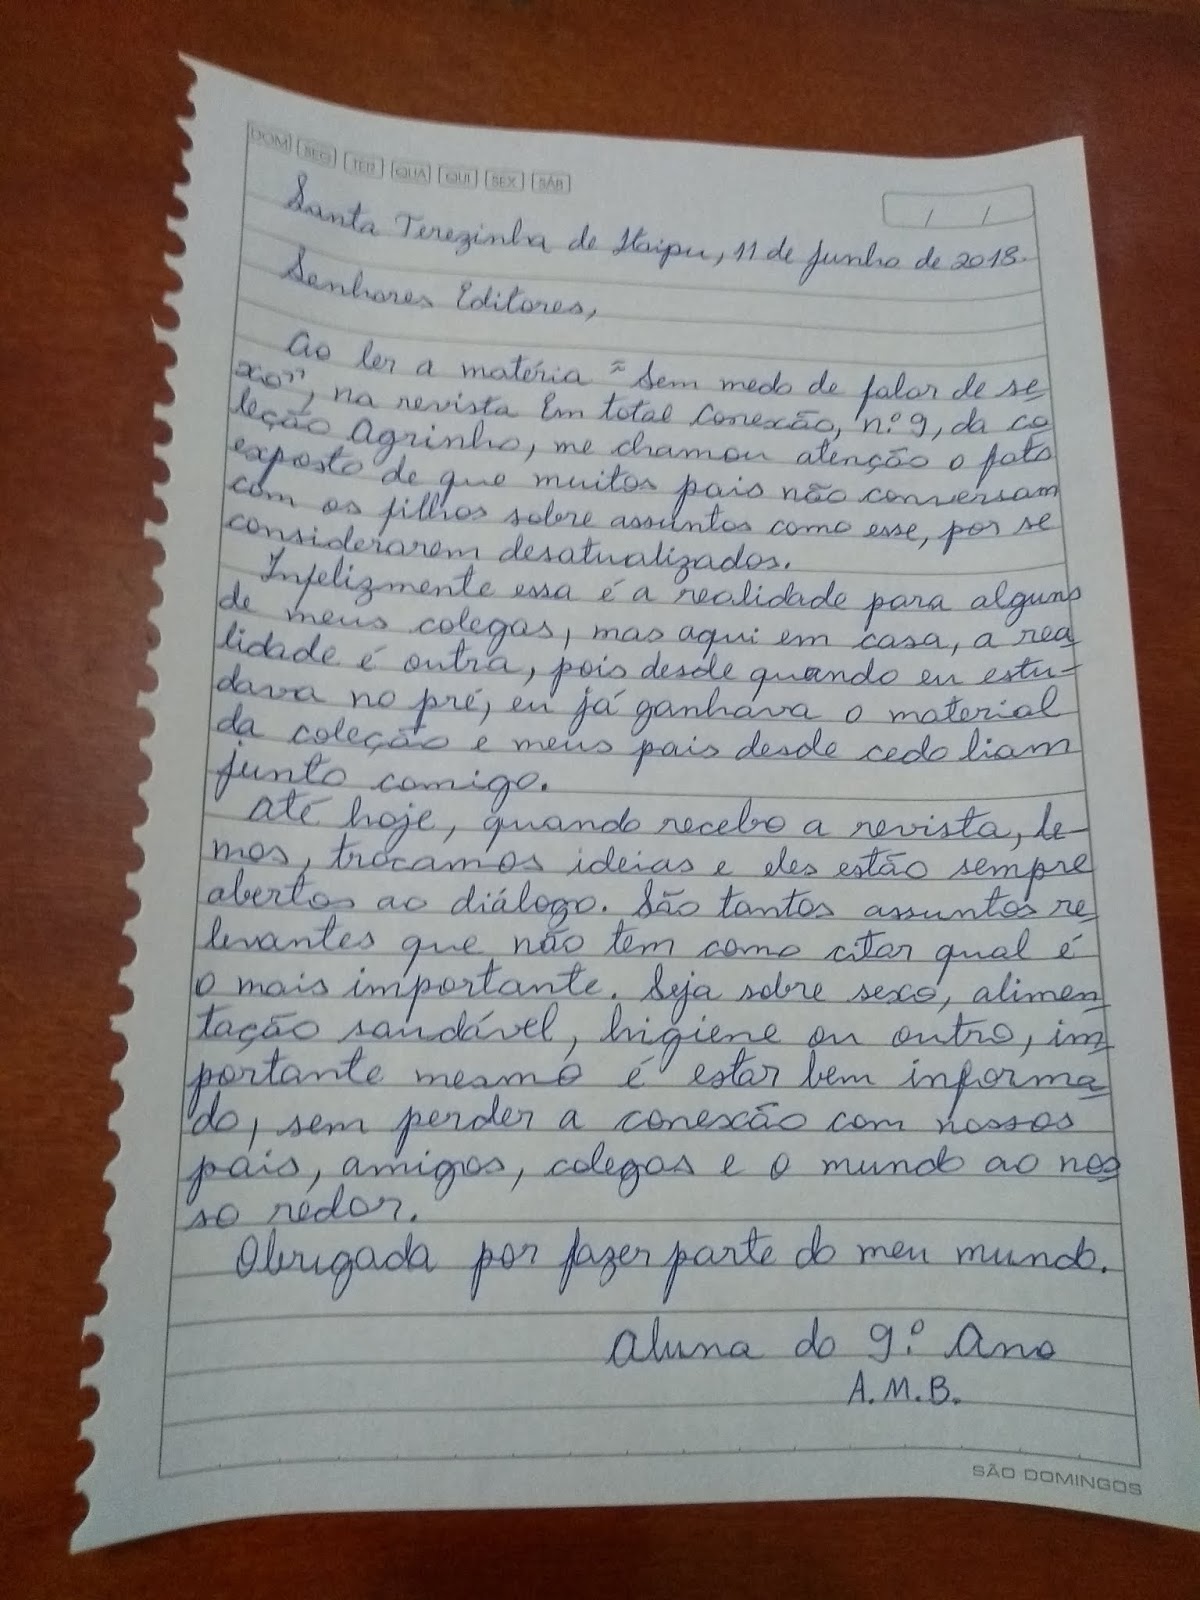 DOM SEG TER QUA QUI SEX SÁB
/ /
Santa Terezinha de Itaipu, 11 de Junho de 2018.
Senhores Editores,
Ao ler a matéria "Sem medo de falar de se
xo", na revista Em total Conexão, n.º 9, da co
leção Agrinho, me chamou atenção o fato
exposto de que muitos pais não conversam
com os filhos sobre assuntos como esse, por se
considerarem desatualizados.
Infelizmente essa é a realidade para alguns
de meus colegas, mas aqui em casa, a rea
lidade é outra, pois desde quando eu estu-
dava no pré, eu já ganhava o material
da coleção e meus pais desde cedo liam
junto comigo.
Até hoje, quando recebo a revista, le-
mos, trocamos ideias e eles estão sempre
abertos ao diálogo. São tantos assuntos re
levantes que não tem como citar qual é
o mais importante. Seja sobre sexo, alimen
tação saudável, higiene ou outro, im
portante mesmo é estar bem informa
do, sem perder a conexão com nossos
pais, amigos, colegas e o mundo ao nos
so redor.
Obrigada por fazer parte do meu mundo.
Aluna do 9.º Ano
A.M.B.
SÃO DOMINGOS